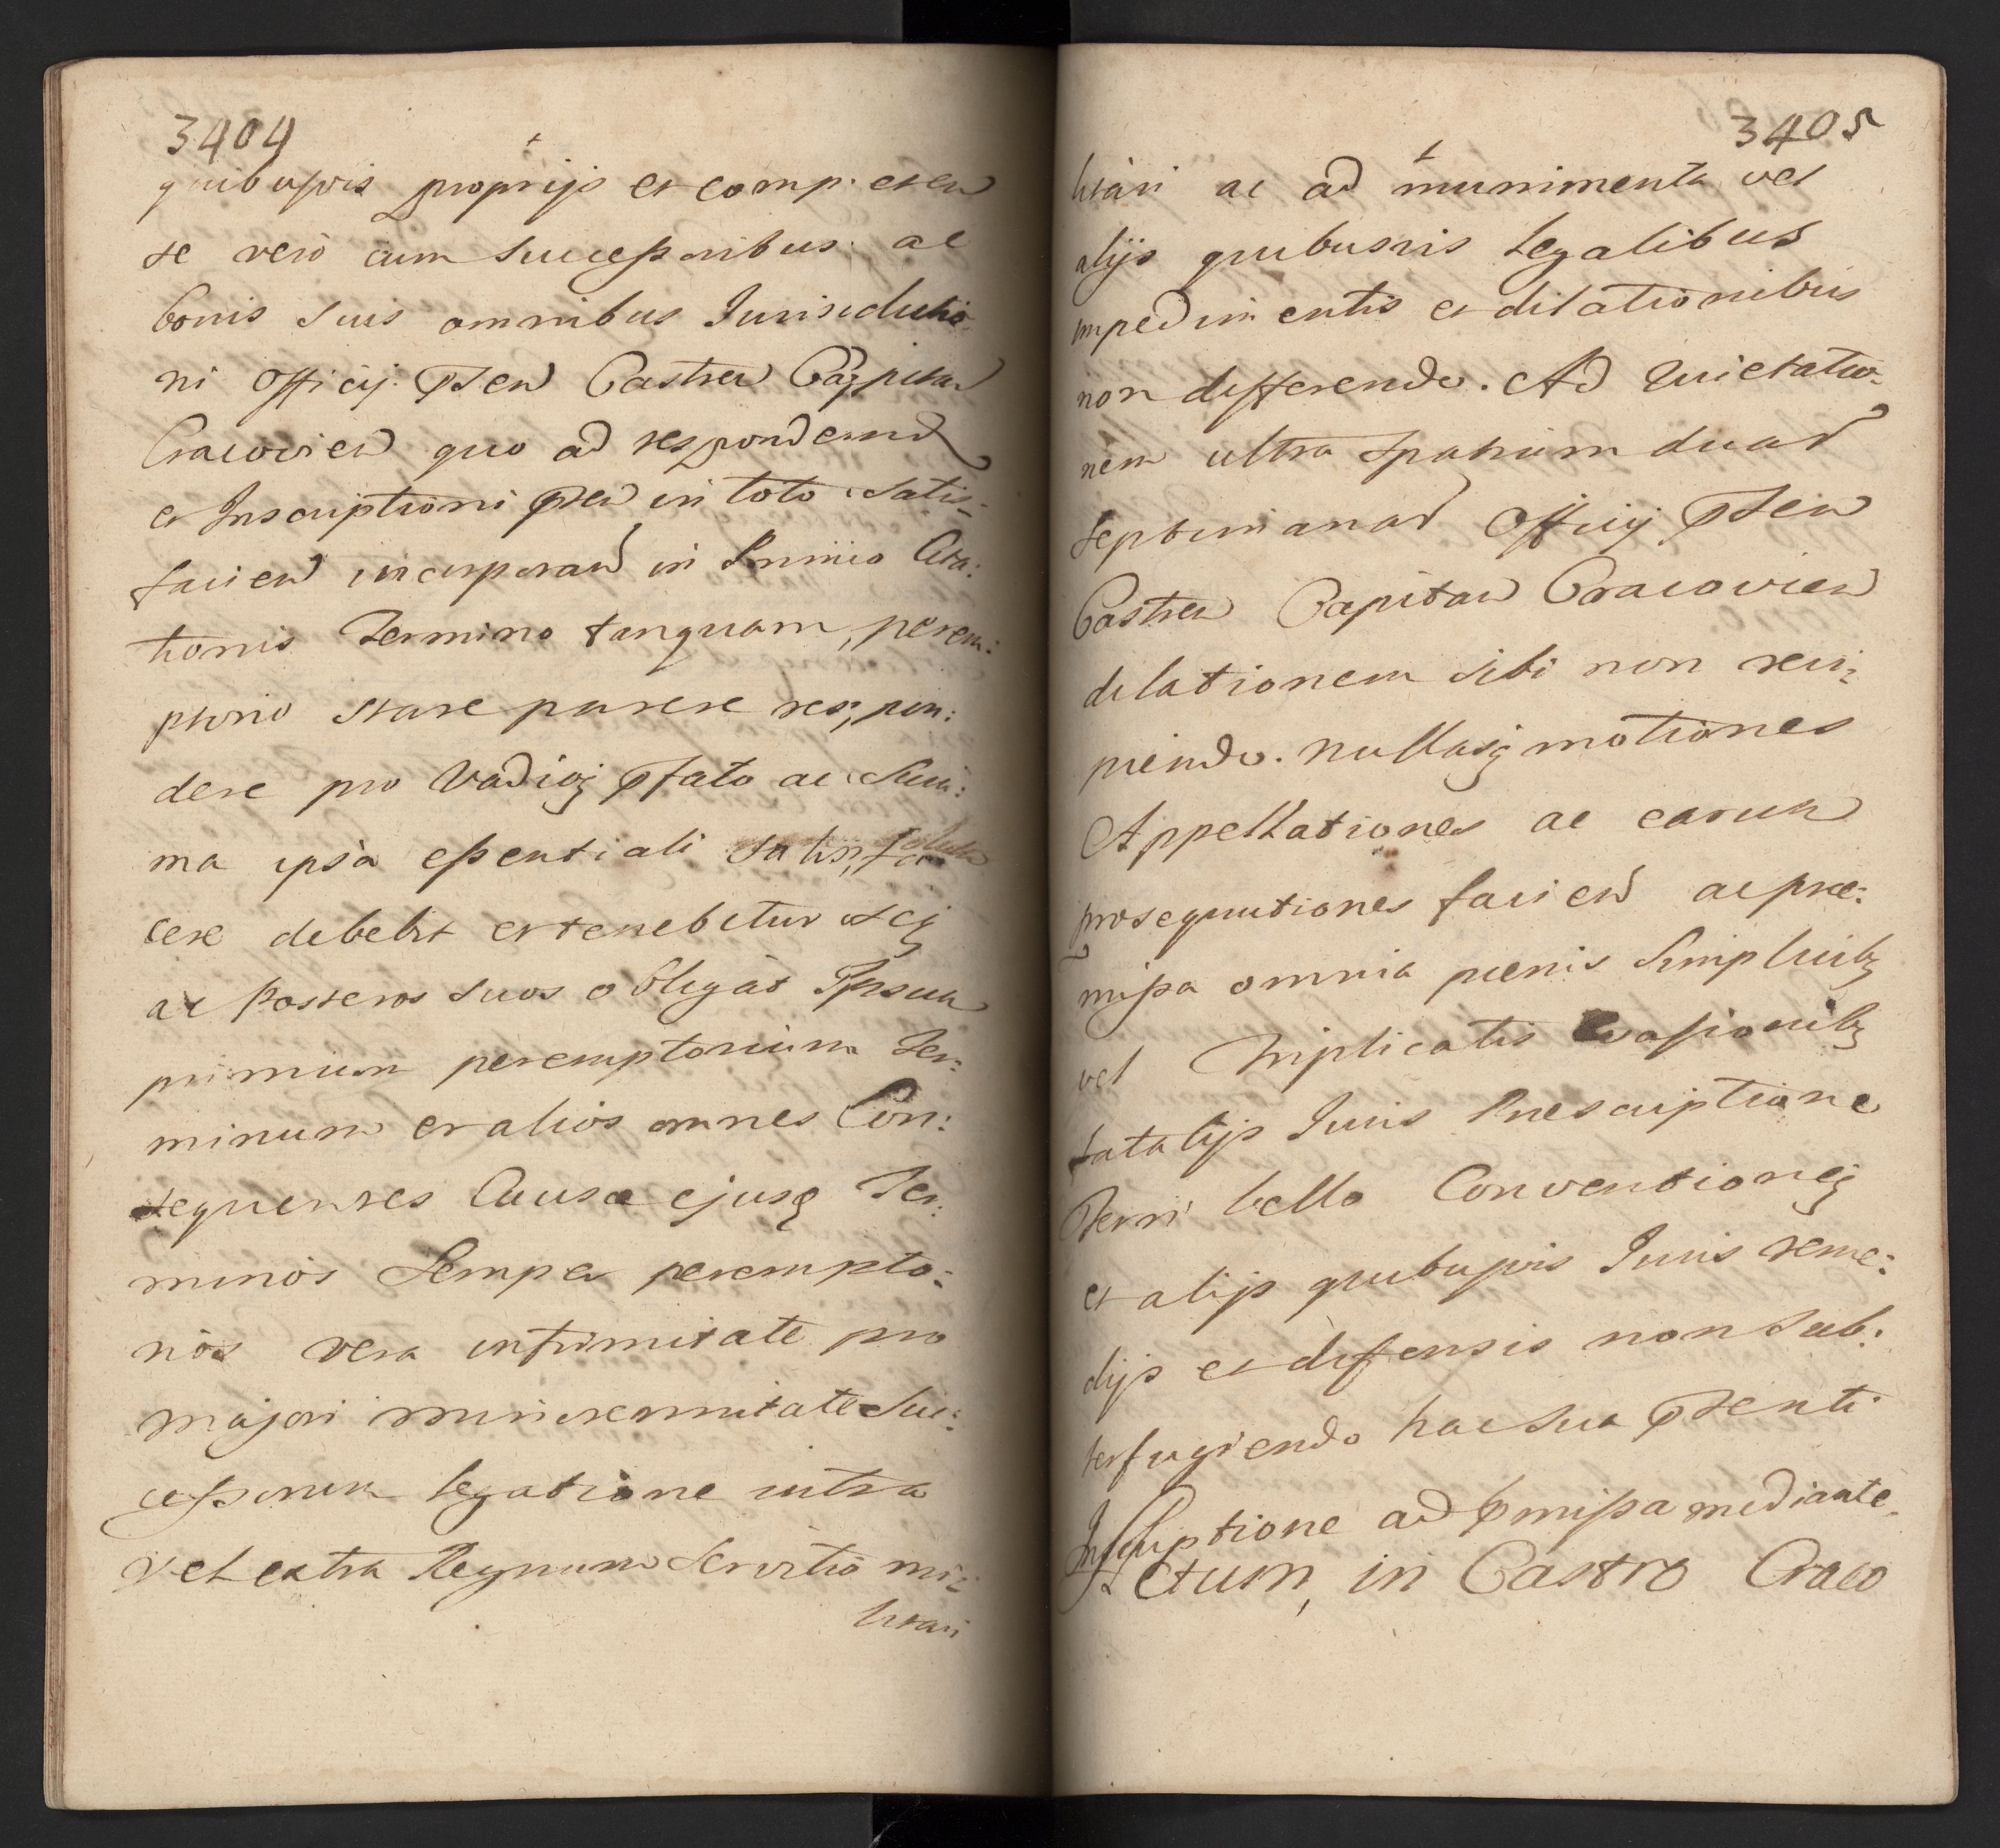 3404
quibusvis proprijs et comp: eten
se vero cum Successoribus ac
bonis suis omnibus Jurisdictio
ni Officij Psen Castren Capitan
Cracovien quo ad respondend
et Inscriptioni Psen in toto satis-
facien incorporan in Primo Cita:
tionis Termino tanquam perem:
ptorio stare parere respon:
dere pro Vadioq Pfato ac Sum:
ma ipsa essentiali satisfa
cere debebit et tenebitur seq
ac Posteros suos obligat Ipsum
primum peremptorium Ter:
minum et alios omnes Con:
sequentes Causae ejusq Ter:
minos Semper perempto:
rios vera infirmitate pro
majori minorennitate Suc:
cessorum legatione intra
vel extra Regnum servitio mi:
litari
3405
litari ac ad munimenta vel
alijs quibusvis legalibus
impedimentis et dilationibus
non differendo. Ad Quietatio-
nem ultra spatium duar
septimanar Officij Psen
Castren Capitan Cracovien
dilationem sibi non reci,
piendo. nullasq motiones
Appellationes ac earum
prosequutiones facien ac prae:
missa omnia paenis Simplicibq
vel Triplicatis Evasionibq
fatalijs Juris Praescriptione
Terri bello Conventioneq
et alijs quibusvis Juris reme:
dijs et diffensis non sub:
terfugiendo hac sua Psenti
Inscriptione ad Pmissa mediante.
Actum, in Castro Craco